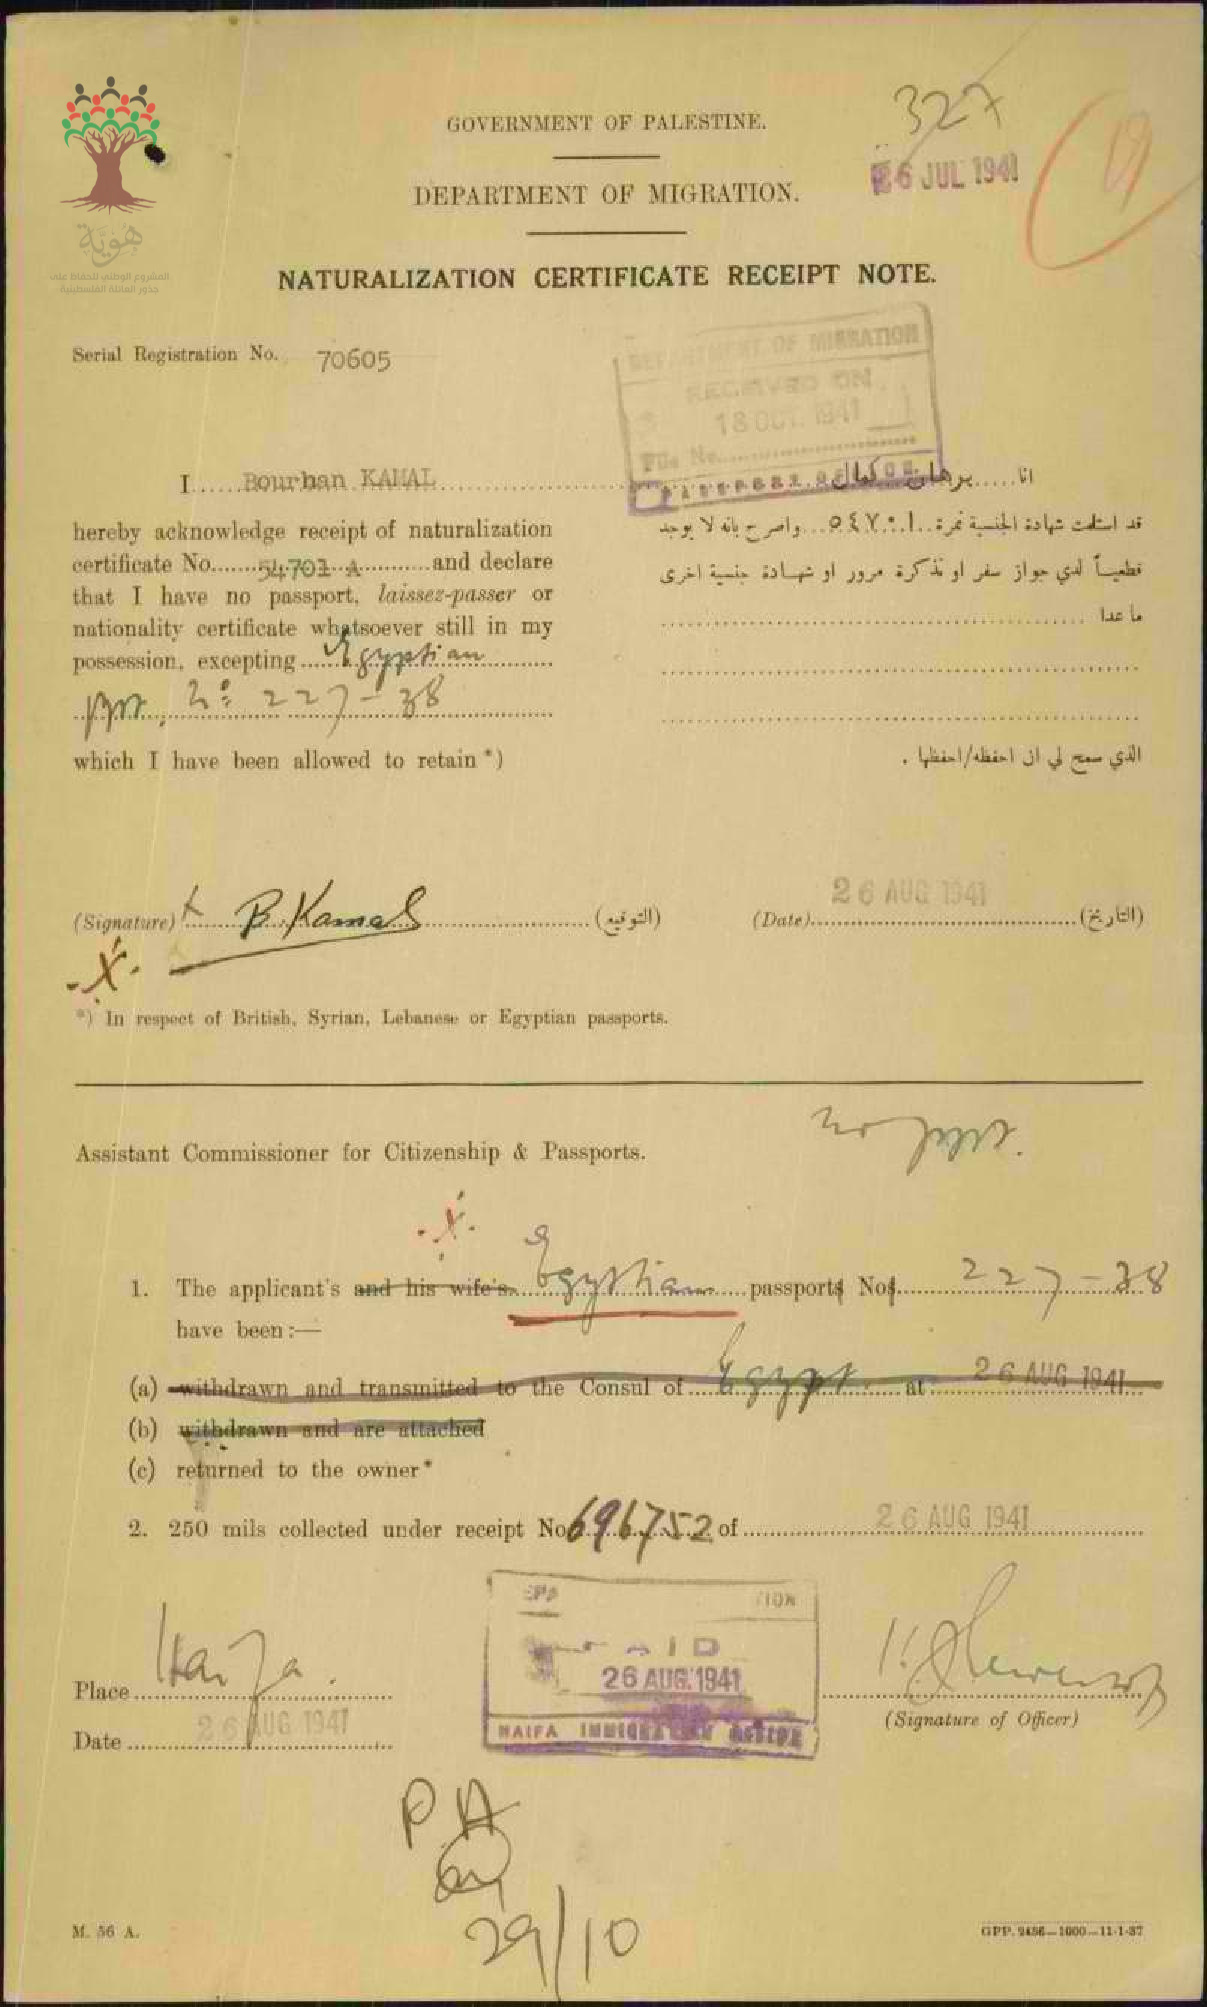 327
GOVERNMENT OF PALESTINE.
26 JUL 1941
19
DEPARTMENT OF MIGRATION.
هَوِيَّة
المشروع الوطني للحفاظ على
جذور العائلة الفلسطينية
NATURALIZATION CERTIFICATE RECEIPT NOTE.
Serial Registration No. 70605
DEPARTMENT OF MIGRATION
RECEIVED ON
18 OCT. 1941
File No.
PASSPORT SECTION
I Bourhan KAMAL
انا برهان كمال
hereby acknowledge receipt of naturalization
certificate No. 54701 A and declare
that I have no passport, laissez-passer or
nationality certificate whatsoever still in my
possession, excepting Egyptian
ppt. No 227-38
which I have been allowed to retain *)
قد استلمت شهادة الجنسية نمرة ٥٤٧٠١ واصرح بانه لا يوجد
قطعياً لدي جواز سفر او تذكرة مرور او شهادة جنسية اخرى
ما عدا
الذي سمح لي ان احفظه/احفظها .
(Signature) X B. Kamal (التوقيع)
26 AUG 1941
(Date) (التاريخ)
.X.
*) In respect of British, Syrian, Lebanese or Egyptian passports.
no ppt.
Assistant Commissioner for Citizenship & Passports.
.X.
1. The applicant's and his wife's Egyptian passports Nos. 227-38
have been :—
(a) withdrawn and transmitted to the Consul of Egypt at 26 AUG 1941
(b) withdrawn and are attached
(c) returned to the owner*
2. 250 mils collected under receipt No 696752 of 26 AUG 1941
26 AUG. 1941
HAIFA IMMIGRATION OFFICE
Place Haifa.
Date 26 AUG 1941
(Signature of Officer)
P.A
29/10
M. 56 A.
GPP. 9486—1000—11-1-37